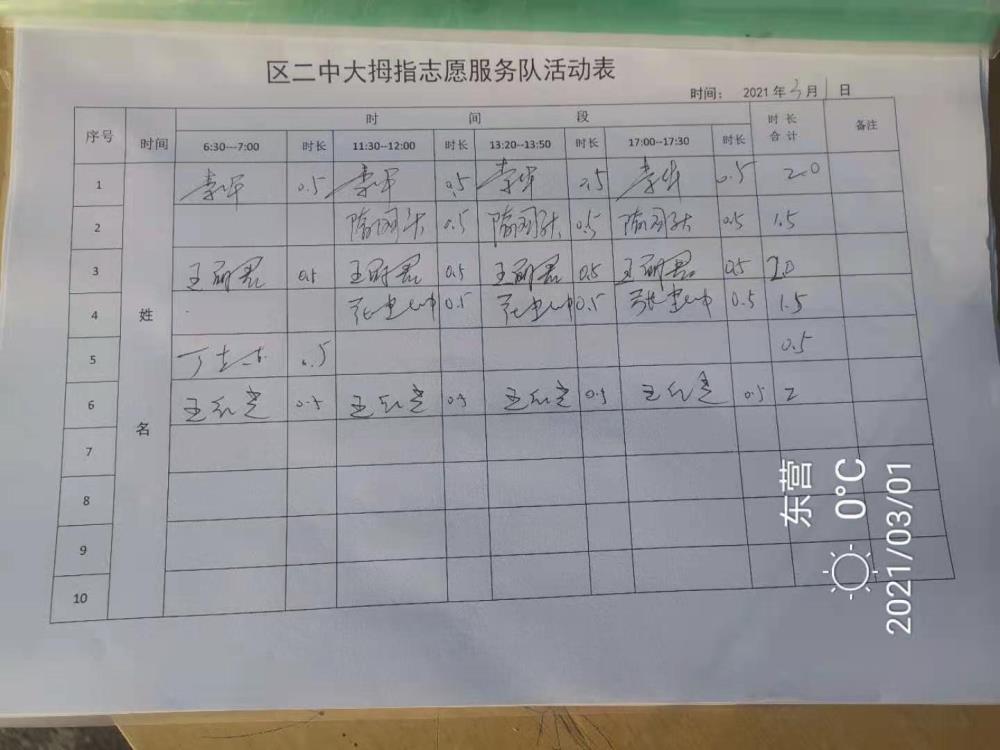 区二中大拇指志愿服务队活动表
时间： 2021 年 3 月 1 日
序号 时间 时 间 段 时 长 合 计 备注
6:30---7:00 时长 11:30--12:00 时长 13:20--13:50 时长 17:00--17:30 时长
姓 名
1 李军 0.5 李军 0.5 李军 0.5 李军 0.5 2.0
2 0.5 0.5 0.5 1.5
3 王丽君 0.5 王丽君 0.5 王丽君 0.5 王丽君 0.5 2.0
4 0.5 0.5 0.5 1.5
5 0.5 0.5
6 王红芝 0.5 王红芝 0.5 王红芝 0.5 王红芝 0.5 2
7
8
9
10
东营
0°C
2021/03/01